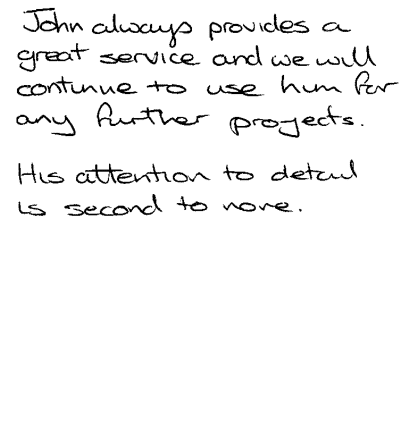 John always provides a
great service and we will
continue to use him for
any further projects.
His attention to detail
is second to none.